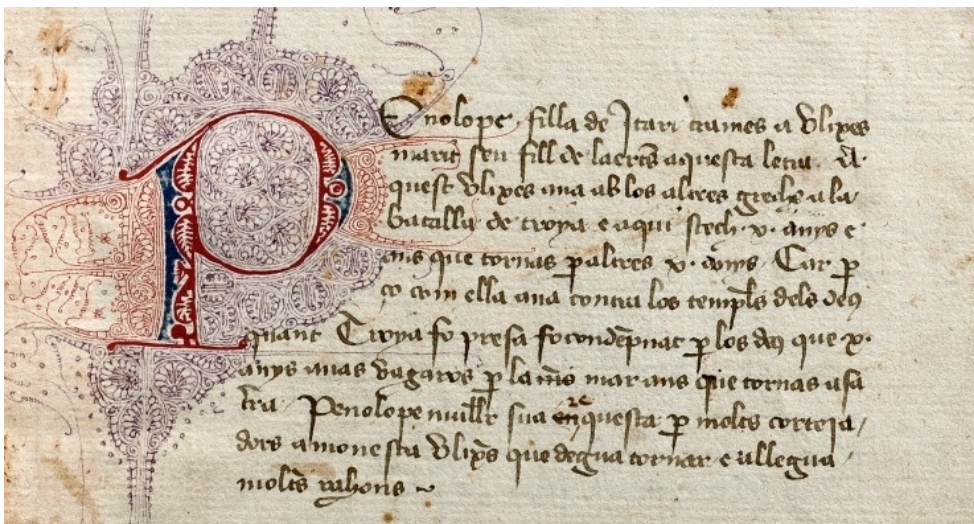 Penolope filla de Icari trames a Ulixes
marit seu fill de laertes aquesta letra. A
quest Ulixes ana ab los altres grechs a la
batalla de troya e aqui stech .x. anys e
ans que tornas p altres .x. anys. Car p
ço com ella ana contra los temples dels deus
quant Troya fo presa fo condēpnat p los deus que .x.
anys anas vagaros p la mar ans que tornas a sa
tr̄a. Penolope muller sua enquesta p molts corteja
dors amonesta Ulixes que degua tornar e allegua
moltes rahons